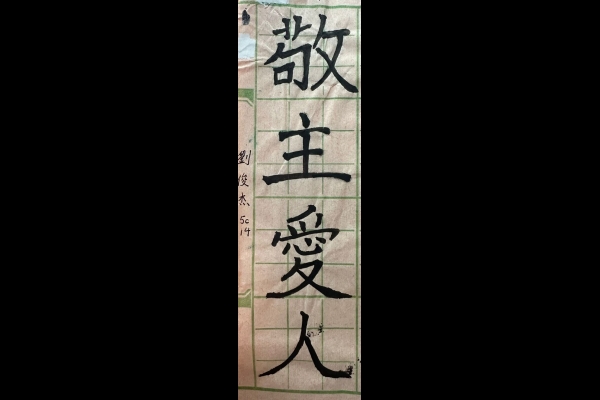 敬主愛人
劉俊杰
5c
14